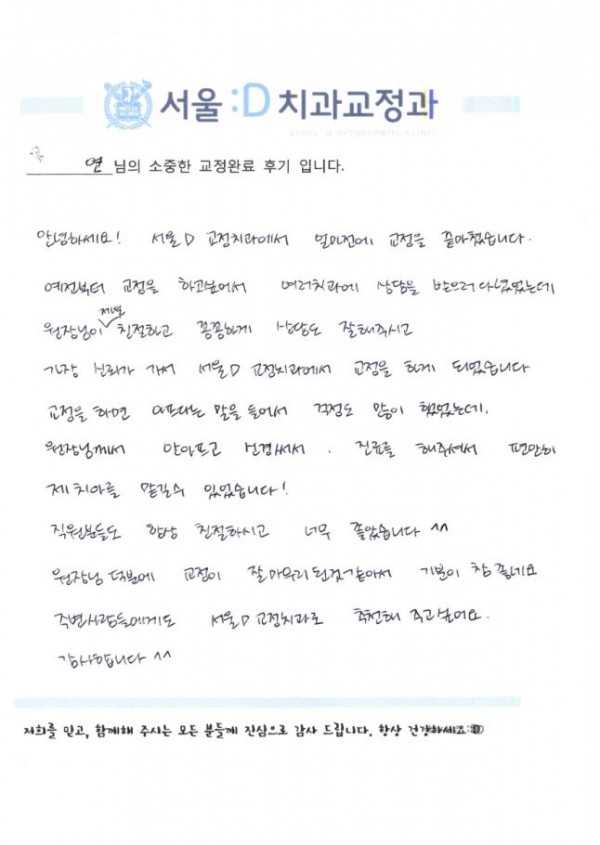 서울:D치과교정과
SEOUL :D ORTHODONTIC CLINIC
연 님의 소중한 교정완료 후기 입니다.
안녕하세요! 서울D 교정치과에서 얼마전에 교정을 끝마쳤습니다.
예전부터 교정을 하고싶어서 여러치과에 상담을 받으러 다녔었는데
원장님이 제일 친절하고 꼼꼼하게 상담도 잘해주시고
가장 신뢰가 가서 서울D 교정치과에서 교정을 하게 되었습니다
교정을 하면 아프다는 말을 들어서 걱정도 많이 했었는데.
원장님께서 안아프고 신경써서. 진료를 해주셔서 편안히
제 치아를 맡길수 있었습니다!
직원분들도 항상 친절하시고 너무 좋았습니다 ^^
원장님 덕분에 교정이 잘 마무리 된것같아서 기분이 참 좋네요
주변사람들에게도 서울D 교정치과로 추천해 주고싶어요.
감사합니다 ^^
저희를 믿고, 함께해 주시는 모든 분들께 진심으로 감사 드립니다. 항상 건강하세요:D